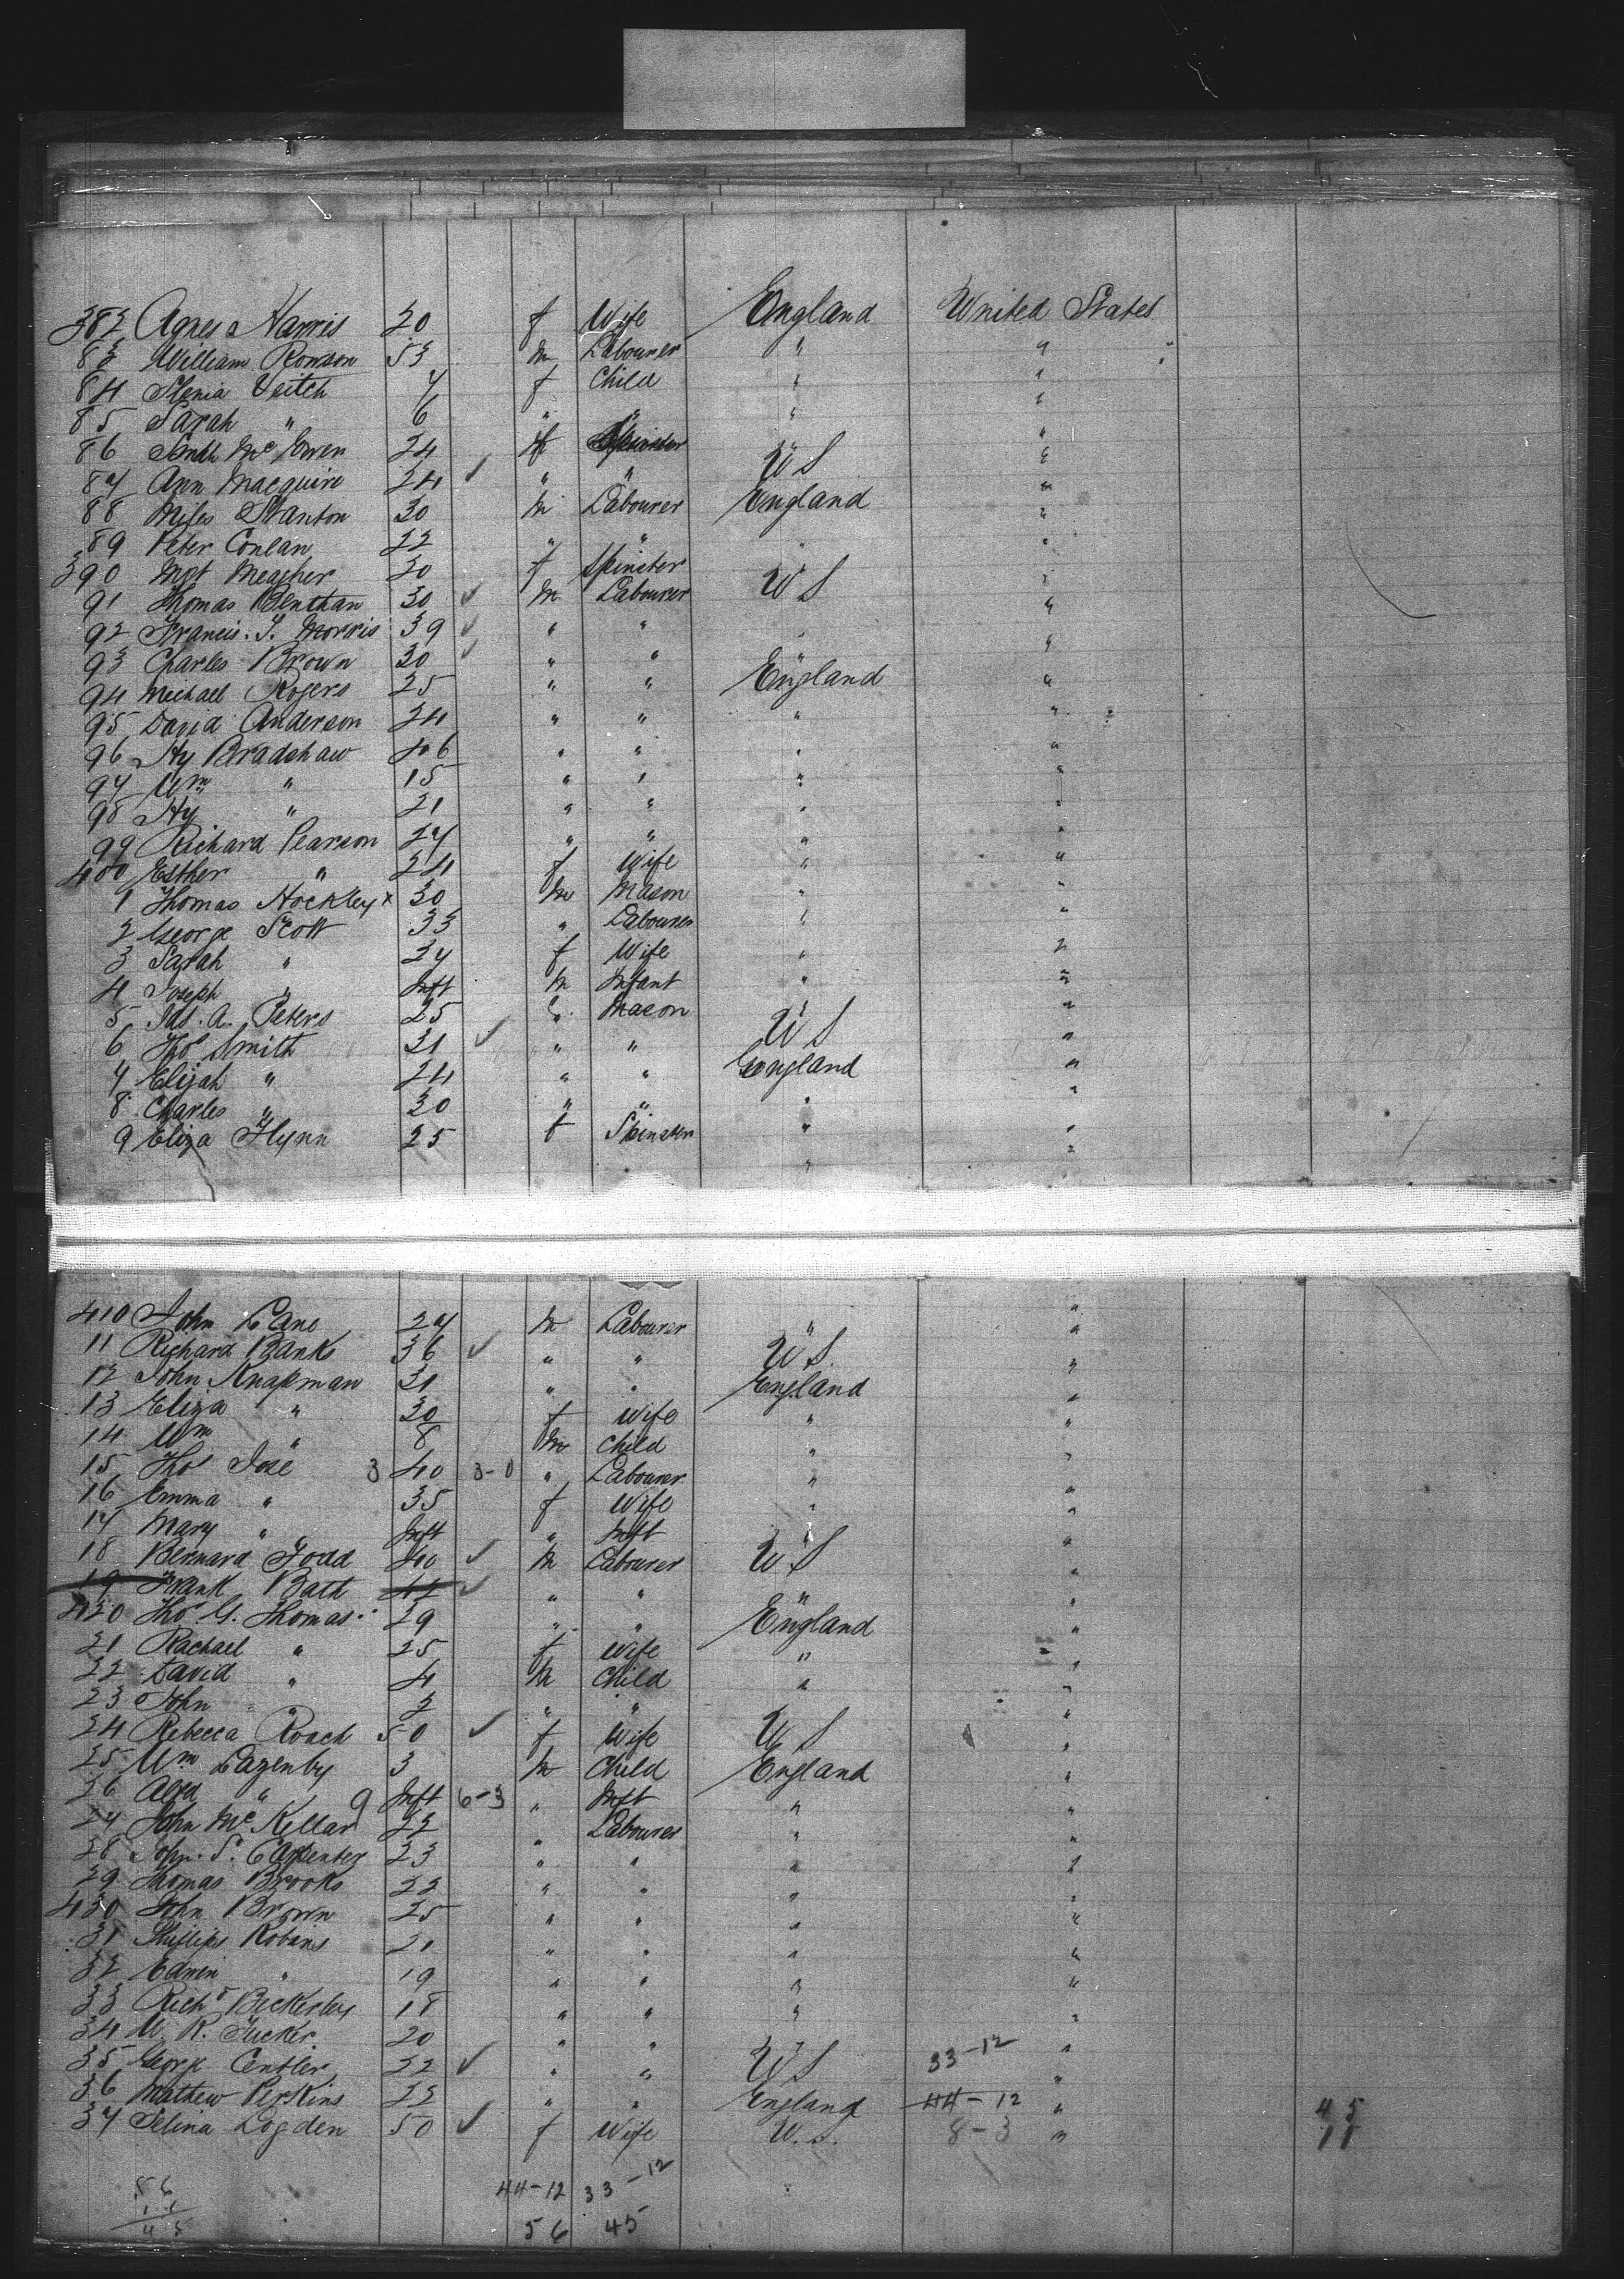 382 Agnes Harris 20 f Wife England United States
83 William Rowson 53 m Labourer " "
84 Veitch 7 f Child " "
85 Sarah " 6 " " " "
86 Mc Ewen 24 f Spinster "
87 Ann Macquire 24 ✓ " " U S "
88 Miles Stanton 30 m Labourer England "
89 Peter Conlan 22 " " " "
390 Mgt Meagher 30 f Spinster "
91 Thomas Benthan 30 ✓ m Labourer U S "
92 Francis. S. Morris 39 ✓ " " " "
93 Charles Brown 30 ✓ " " " "
94 Michael Rogers 25 " " England "
95 David Anderson 24 " " " "
96 Hy Bradshaw 46 " " " "
97 Wm " 15 " " " "
98 Hy " 21 " " " "
99 Richard Pearson 27 " " " "
400 Esther " 24 f Wife " "
1 Thomas Hockley x 30 m Mason " "
2 George Scott 33 " Labourer " "
3 Sarah " 27 f Wife " "
4 Joseph " Inft m Infant " "
5 Jas. A. Peters 25 " Mason "
6 Thos Smith 31 ✓ " " U S "
7 Elijah " 24 " " England "
8 Charles " 20 " " " "
9 Eliza Flynn 25 f Spinster " "
410 John Lane 27 m Labourer " "
11 Richard Banks 36 ✓ " " U S. "
12 John Knapman 31 " " England "
13 Eliza " 30 f Wife " "
14 Wm " 8 m Child " "
15 Thos José 3 40 3-0 " Labourer " "
16 Emma " 35 f Wife " "
17 Mary " Inft " Inft "
18 Bernard Todd 40 ✓ m Labourer U S "
19 Frank Bath 42 ✓ " " " "
420 Thos G. Thomas 29 " " England "
21 Rachael " 25 f Wife " "
22 David " 4 m Child " "
23 John " 2 " "
24 Rebecca Roach 50 ✓ f Wife U S "
25 Wm Lazenby 3 m Child England "
26 Alfd " 9 Inft 6-3 " Inft " "
27 John McKellar 22 Labourer " "
28 John. S. Carpenter 23 " " " "
29 Thomas Brooks 22 " " " "
430 John Brown 25 " " " "
31 Phillips Robins 21 " " " "
32 Edwin " 19 " " " "
33 Richd Bickerley 18 " " " "
34 W. R. Tucker 20 " " "
35 George Centler 22 ✓ " " U S 33-12 "
36 Mathew Perkins 22 " " England 44-12 "
37 Selina Logden 50 ✓ f Wife U.S. 8-3 " 45
11
56 44-12 33-12
11
45 56 45